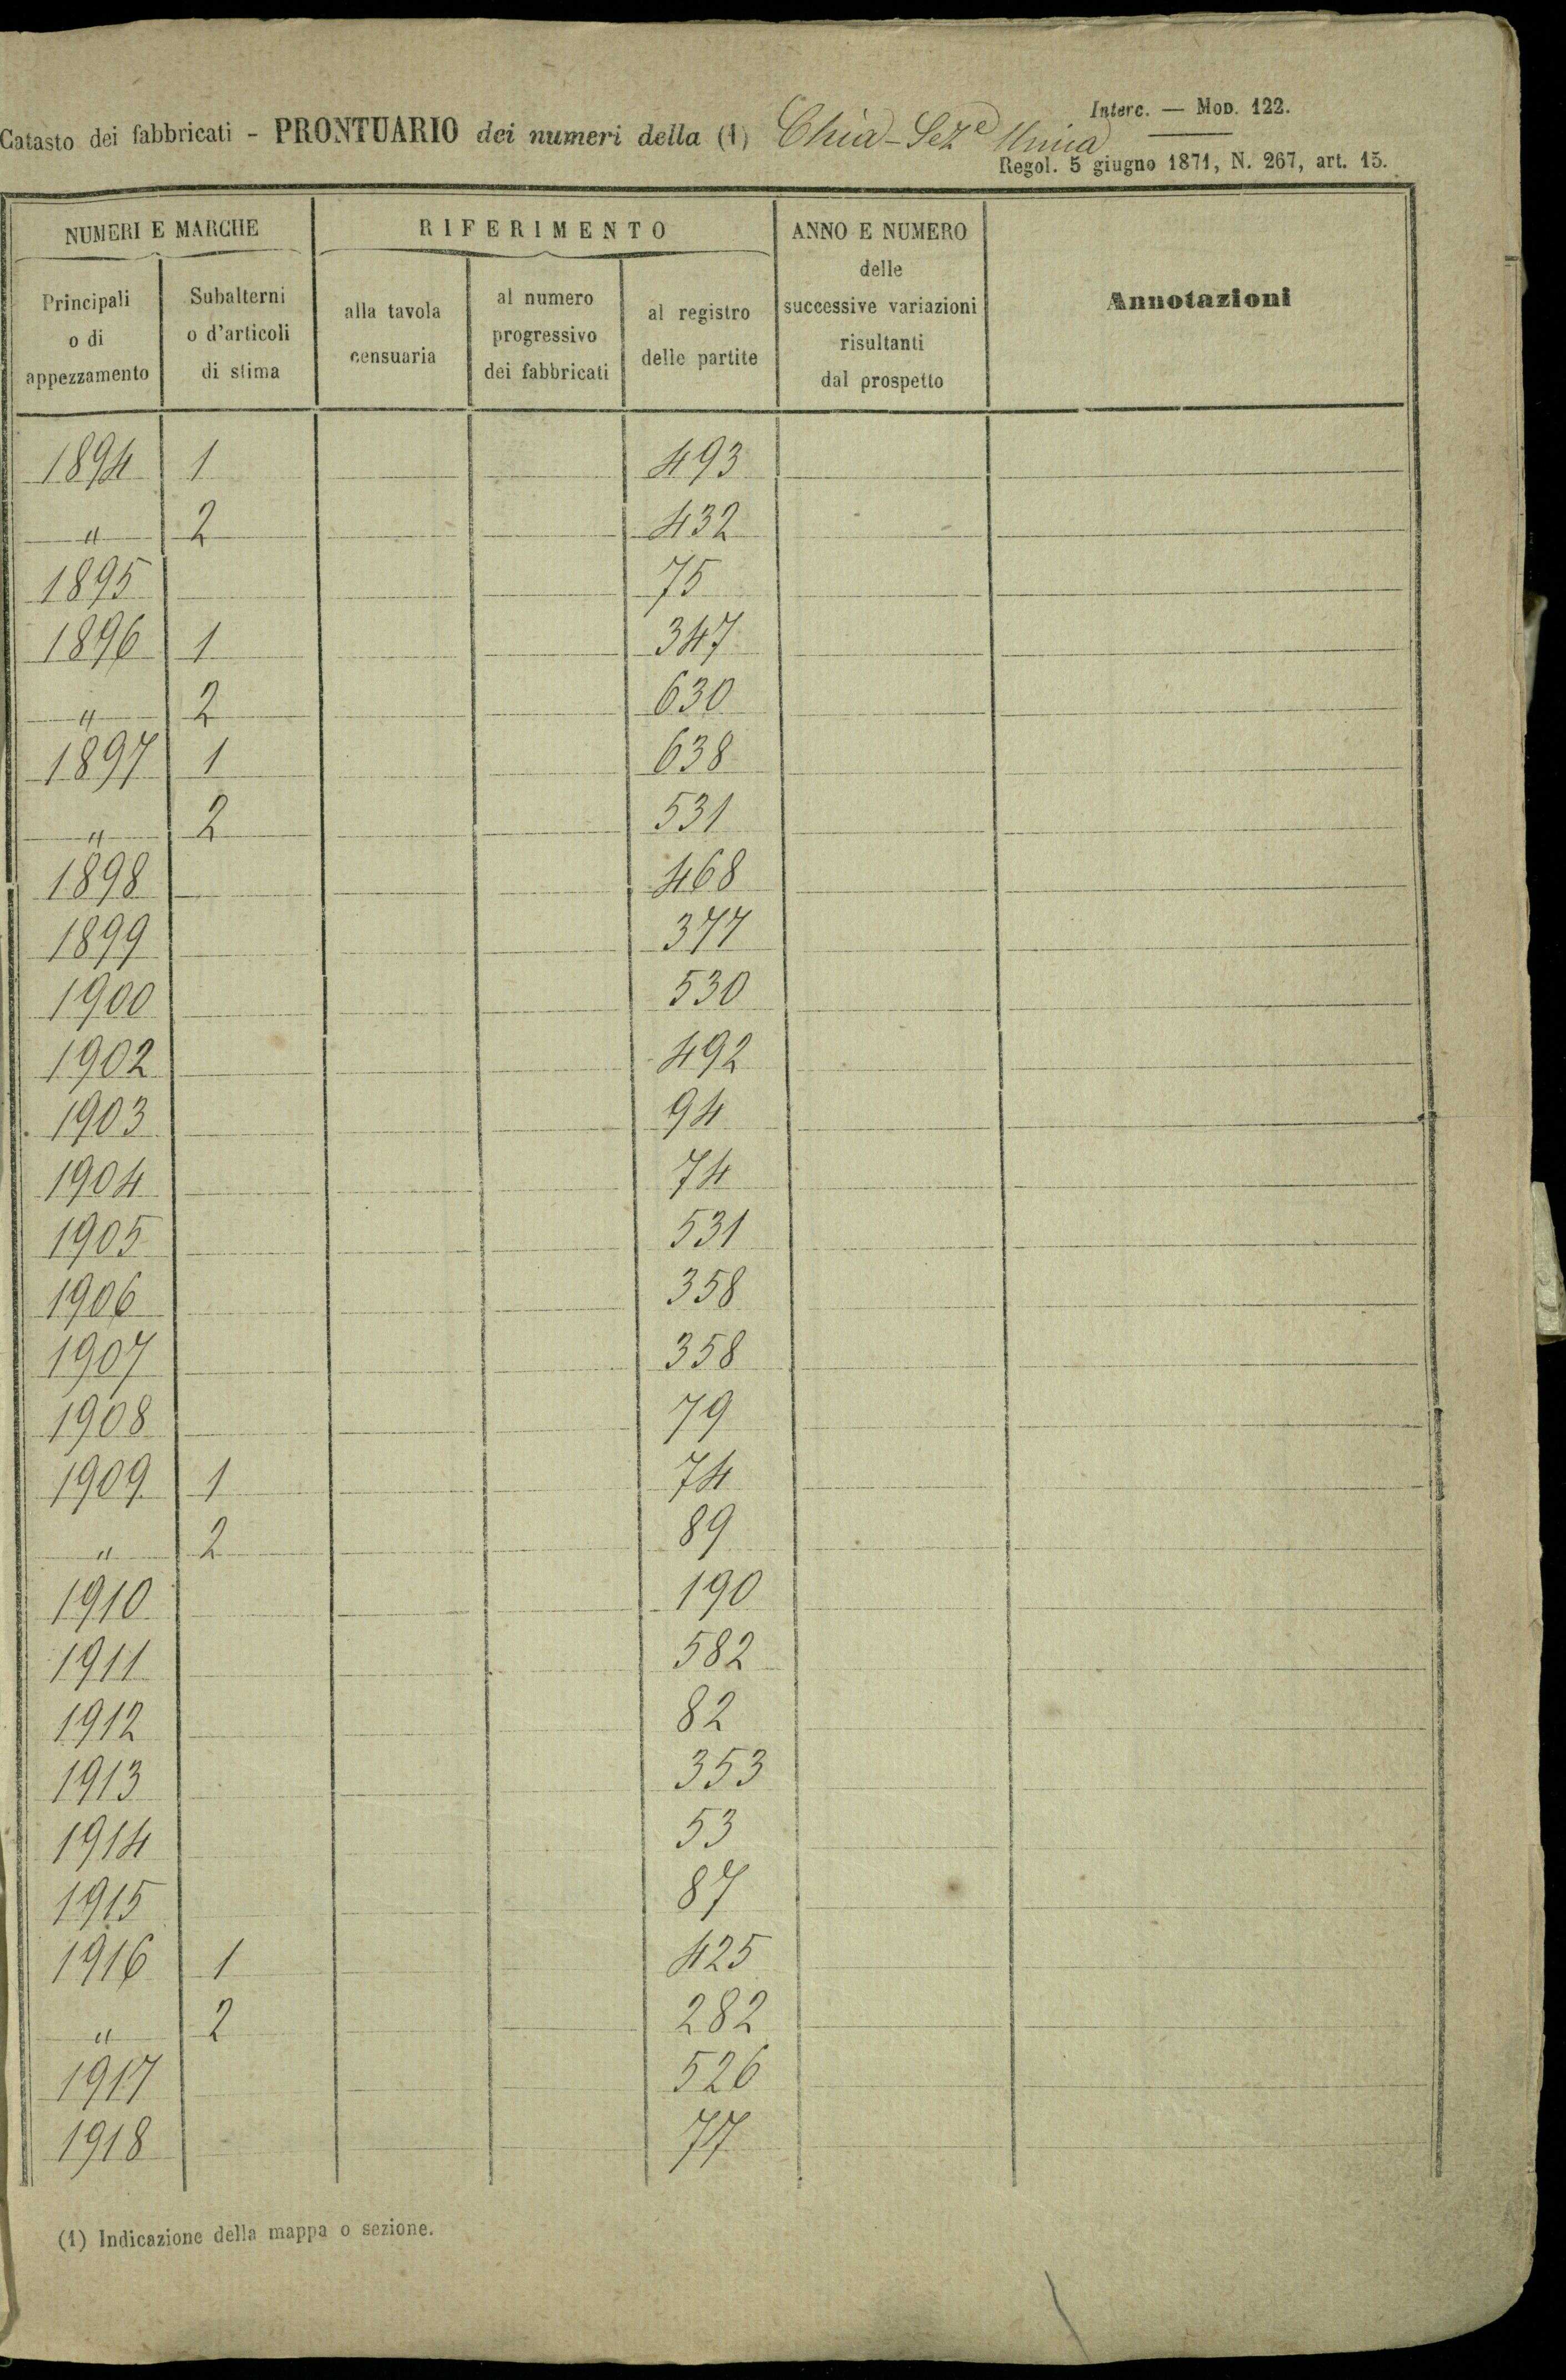 Interc. — Mod. 122.
Catasto dei fabbricati - PRONTUARIO dei numeri della (1) Chia - Seze Unica
Regol. 5 giugno 1871, N. 267, art. 15.
NUMERI E MARCHE RIFERIMENTO ANNO E NUMERO delle successive variazioni risultanti dal prospetto Annotazioni
Principali o di appezzamento Subalterni o d'articoli di stima alla tavola censuaria al numero progressivo dei fabbricati al registro delle partite
1894 1 493
" 2 432
1895 75
1896 1 347
" 2 630
1897 1 638
" 2 531
1898 468
1899 377
1900 530
1902 492
1903 94
1904 74
1905 531
1906 358
1907 358
1908 79
1909 1 74
" 2 89
1910 190
1911 582
1912 82
1913 353
1914 53
1915 87
1916 1 425
" 2 282
1917 526
1918 77
(1) Indicazione della mappa o sezione.